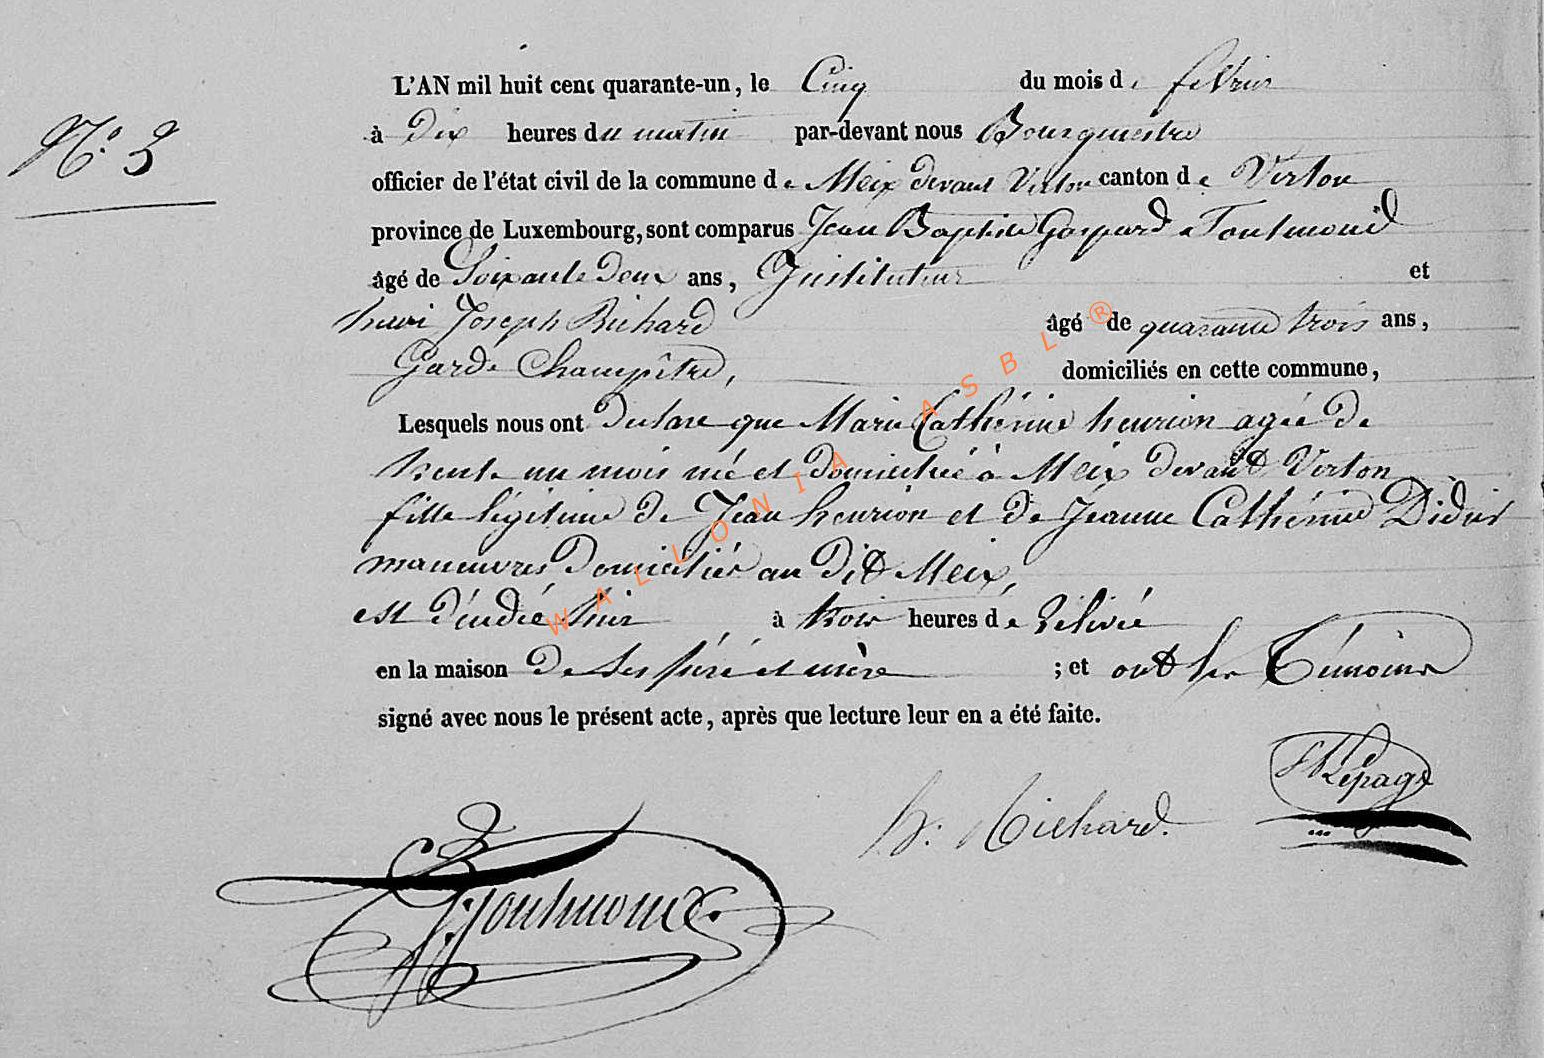 L'AN mil huit cent quarante-un, le Cinq du mois de février
N.° 3
à Dix heures du matin par-devant nous Bourguestre
officier de l'état civil de la commune de Meix devant Virton canton de Virton
province de Luxembourg, sont comparus Jean Baptiste Gaspard Toutmond
âgé de Soixante Deux ans, Instituteur et
henri Joseph Richard âgé de quarante trois ans,
Garde Champêtre, domiciliés en cette commune,
Lesquels nous ont Declaré que Marie Cathérine henrion agée de
trente un mois né et domiciliée à Meix devant Virton
fille légitime de Jean henrion et de Jeanne Cathérine Didier
maneuvres Domiciliés au dit Meix,
est décédée hier à trois heures de rélivée
en la maison De Ses péré et mère ; et ont les Témoins
signé avec nous le présent acte, après que lecture leur en a été faite.
Lepage
h. Richard.
Toutmond.
WALLONIA ASBL ®